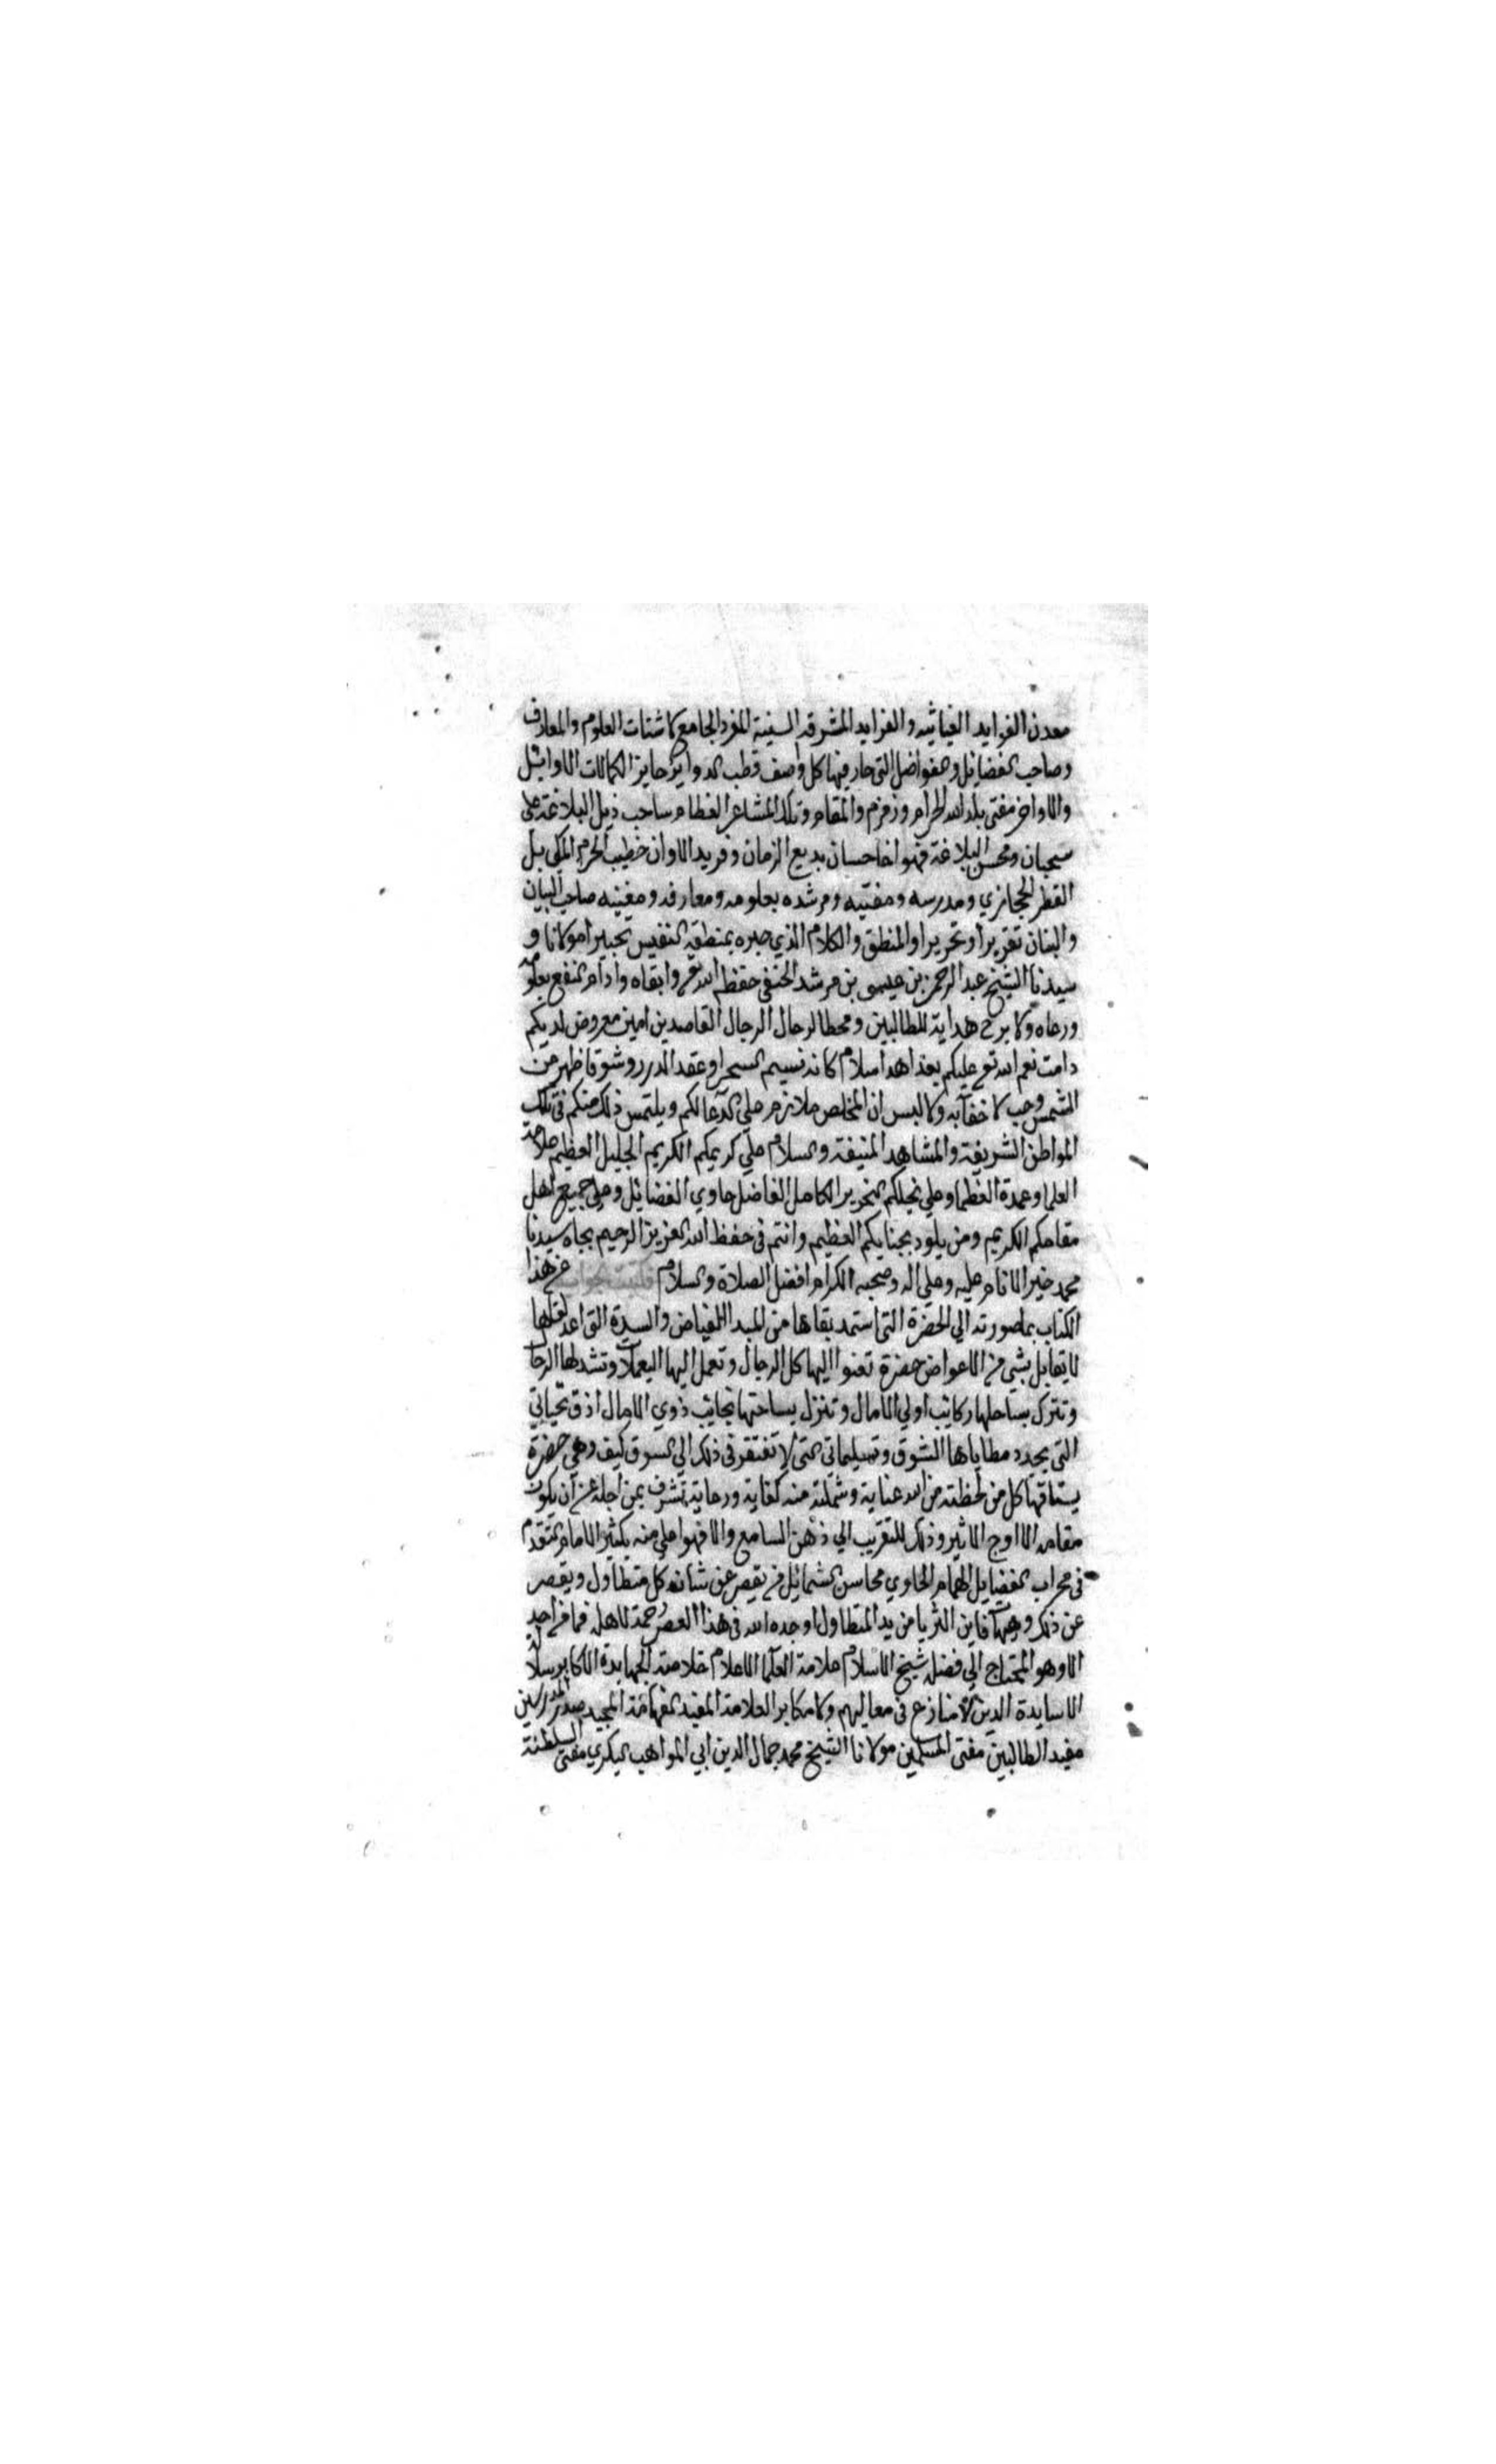 معدن الفوايد الغياثيه والفرايد المشرقه السنية المفرد الجامع لاشتات العلوم والمعارف
وصاحب الفضايل والفواضل التي حار فيها كل واصف قطب الدواير حايز الكمالات الاوايل
والاواخر مفتي بلد الله الحرام وزمزم والمقام وتلك المشاعر العظام ساحب ذيل البلاغة على
سحبان ومحسن البلاغة فهو اخا حسان بديع الزمان وفريد الاوان خطيب الحرم المكي بل
القطر الحجازي ومدرسه ومفتيه ومرشده بعلومه ومعارفه ومغنيه صاحب البيان
والبنان تقريرا وتحريرا والمنطق والكلام الذي حبره بمنطقه النفيس تحبيرا مولانا و
سيدنا الشيخ عبد الرحمن بن عيسى بن مرشد الحنفي حفظه الله تع وابقاه وادام النفع بعلومه
ورعاه ولا برح هداية للطالبين ومحطا لرحال الرجال القاصدين امين معروض لديكم
دامت نعم الله تع عليكم بعد اهدا سلام كانه نسيم السحر او عقد الدرر وشوق اظهر من
الشمس وحب لا خفا به ولا لبس ان المخلص ملازم على الدعا لكم ويلتمس ذلك منكم في تلك
المواطن الشريفة والمشاهد المنيفة والسلام على كريمكم الكريم الجليل العظيم علامة
العلما وعمدة العظما وعلى نجلكم النحرير الكامل الفاضل حاوي الفضايل وعلى جميع اهل
مقامكم الكريم ومن يلوذ بجنابكم العظيم وانتم في حفظ الله العزيز الرحيم بجاه سيدنا
محمد خير الانام عليه وعلى اله وصحبه الكرام افضل الصلاة والسلام فكتبت جوابه عن هذا
الكتاب بما صورته الي الحضرة التي استمد بقاها من المبدا الفياض والسدة التي اعد لقلها
لا يقابل بشي من الاعواض حضرة تعنوا اليها كل الرجال وتعمل اليها اليعملات وتشد لها الرحا
وتترك بساحلها ركايب اولي الامال وتنزل بساحتها نجايب ذوي الامال ازق تحياتي
التي يجدد مطاياها الشوق وتسليماتي التي لا تفتقر في ذلك الي السوق كيف وهي حضرة
يشتاقها كل من لحظته من الله عناية وشملته منه كفاية ورعاية تشرف بمن اجله عن ان يكون
مقامه الا اوج الاثير وذلك للتقريب الي ذهن السامع والا فهو اعلي منه بكثير الامام المتقدم
في محراب الفضايل الهمام الحاوي محاسن الشمايل من يقصر عن شانه كل متطاول ويقصر
عن ذكر وصفها فاين الثريا من يد المتطاول اوجده الله في هذا العصر رحمة لاهله فما من احد
الا وهو المحتاج الي فضله شيخ الاسلام علامة العلما الاعلام خلاصة الجهابدة الاكابر سلالة
الاسايدة الدين لا منازع في معاليهم ولا مكابر العلامة المفيد الفهامة المجيد صدر المدرسين
مفيد الطالبين مفتي المسلمين مولانا الشيخ محمد جمال الدين ابي المواهب البكري مفتي السلطنة